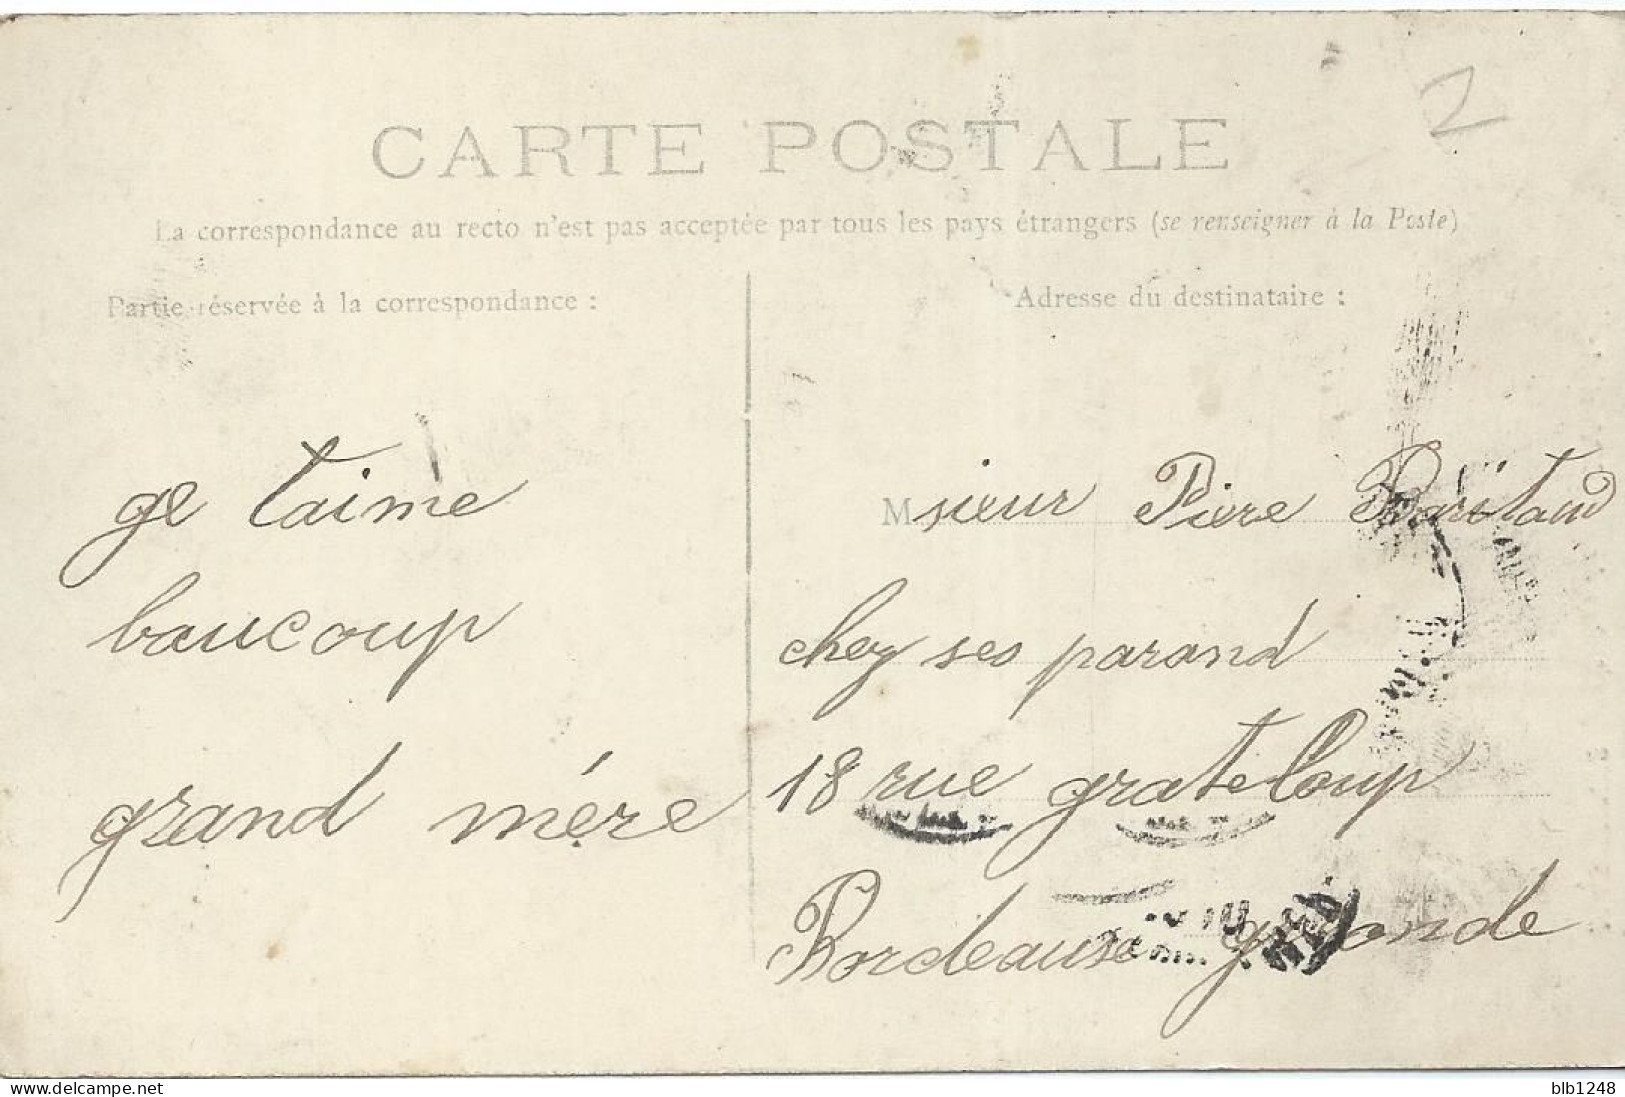 CARTE POSTALE
La correspondance au recto n'est pas acceptée par tous les pays étrangers (se renseigner à la Poste)
Partie réservée à la correspondance :
Adresse du destinataire :
ge t'aime
baucoup
grand mére
Msieur Piere Baritaud
chez ses parand
18 rue grateloup
Bordeause gironde
2
delcampe.net
blb1248